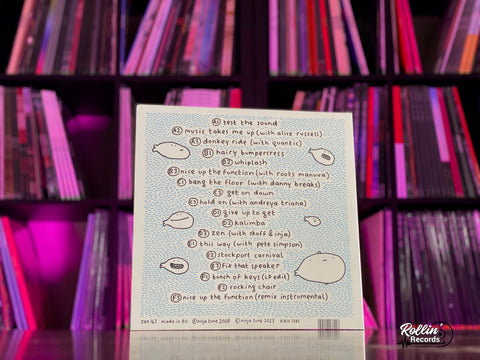 A1 test the sound
A2 music takes me up (with alice russell)
A3 donkey ride (with quantic)
B1 hairy bumpercress
B2 whiplash
B3 nice up the function (with roots manuva)
C1 bang the floor (with danny breaks)
C2 get on down
C3 hold on (with andreya triana)
D1 give up to get
D2 kalimba
D3 zen (with skuff & inja)
E1 this way (with pete simpson)
E2 stockport carnival
E3 fix that speaker
F1 bunch of keys (LP edit)
F2 rocking chair
F3 nice up the function (remix instrumental)
zen143 made in EU ©ninja tune 2008 ©ninja tune 2023
Rollin'
Records